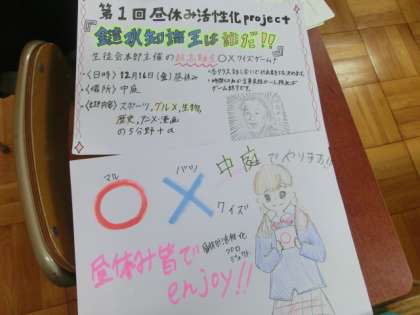 第1回昼休み活性化project
『鎌水知識王は誰だ!!』
生徒会本部主催の超高難度〇×クイズゲーム!
・〈日時〉12月16日(金)昼休み
・〈場所〉中庭
スポーツ,グルメ,生物,
歴史,アニメ・漫画
の5分野+α
マル
バツ
〇×クイズ
中庭でやります!!
昼休み活性化
プロジェクト
昼休み皆で
enjoy!!